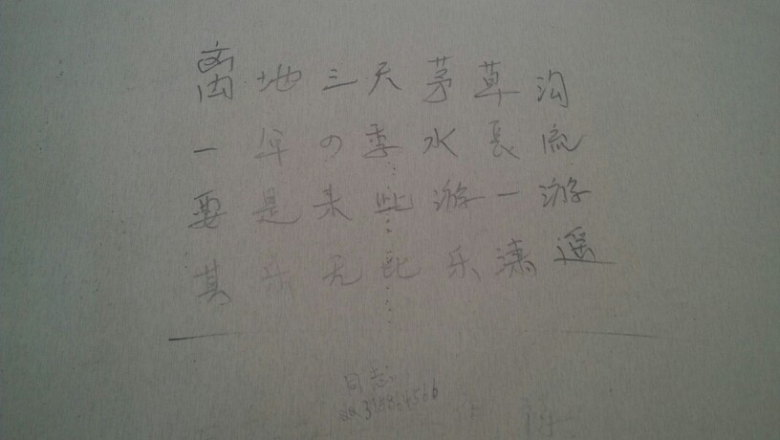 离地三天茅草沟
一年四季水长流
要是来此游一游
其乐无比乐潇遥
同志